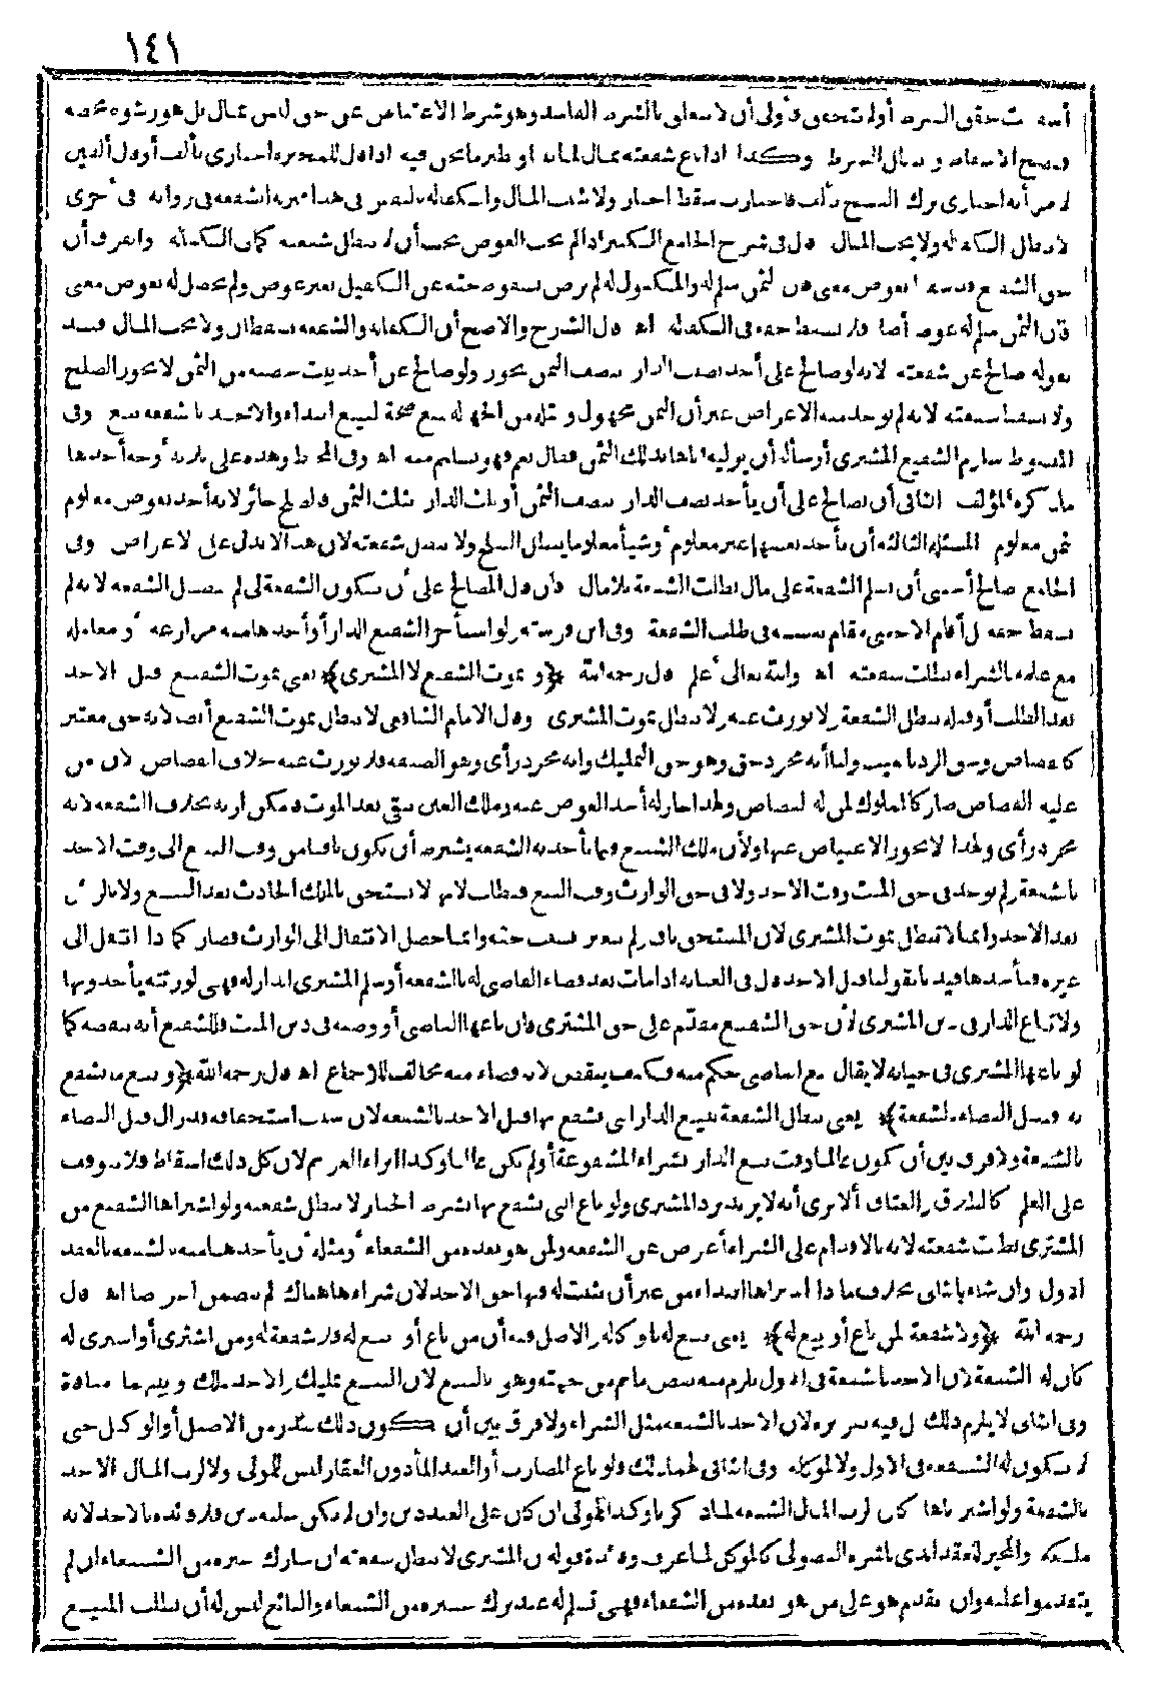 ١٤١
أولم يتحقق فأولى أن لا يتعلق بالشرط الفاسد وهو شرط الاعتياض عن حق ليس بمال بل هو رشوة محضة
فيصح الاسقاط ويبطل الشرط وكذا اذا باع شفعته بمال لما بينا ونظير ما نحن فيه اذا قال للمخيرة اختاري بألف أو قال العنين
لامرأته اختاري ترك الفسخ بألف فاختارت سقط الخيار ولا يثبت المال والكفالة بالنفس في هذا بمنزلة الشفعة في رواية وفي أخرى
لا تبطل الكفالة ولا يجب المال قال في شرح الجامع الكبير اذا لم يجب العوض يجب أن لا تبطل شفعته كما في الكفالة والفرق أن
حق الشفيع قد سقط بعوض معنى فان الثمن سلم له والمكفول له لم يرض بسقوط حقه عن الكفيل بغير عوض ولم يحصل له عوض معنى
فان الثمن سلم له عوض أصلا فلا يسقط حقه في الكفالة اه قال الشرح والاصح أن الكفالة والشفعة يسقطان ولا يجب المال قيد
بقوله صالح عن شفعته لانه لو صالح على أخذ نصف الدار بنصف الثمن يجوز ولو صالح عن أخذ بيت بحصته من الثمن لا يجوز الصلح
ولا تسقط شفعته لانه لم يوجد منه الاعراض غير أن الثمن مجهول ومثله من الجهالة يمنع صحة البيع ابتداء والاخذ بالشفعة بيع وفي
المبسوط ساوم الشفيع المشتري أو سأله أن يوليه اياها بذلك الثمن فقال نعم فهو تسليم منه اه وفي المحيط وهذه على ثلاثة أوجه أحدها
ما ذكره المؤلف الثاني أن يصالح على أن يأخذ نصف الدار بنصف الثمن أو ثلث الدار بثلث الثمن فالصلح جائز لانه أخذ بعوض معلوم
ثمن معلوم المسئلة الثالثة أن يأخذ بعينها غير معلوم أو شيأ معلوما يبطل الصلح ولا تبطل شفعته لان هذا لا يدل على الاعراض وفي
الجامع صالح أجنبي أن يسلم الشفعة على مال بطلت الشفعة بلا مال فان قال المصالح على أن تكون الشفعة لي لم تبطل الشفعة لانه لم
يسقط حقه بل أقام الاجنبي مقام نفسه في طلب الشفعة وفي ابن فرشته لو استأجر الشفيع الدار أو أخذها منه مزارعة أو معاملة
مع علمه بالشراء بطلت شفعته اه والله تعالى أعلم قال رحمه الله ﴿وبموت الشفيع لا المشتري﴾ يعني بموت الشفيع قبل الاخذ
بعد الطلب أو قبله تبطل الشفعة ولا تورث عنه ولا تبطل بموت المشتري وقال الامام الشافعي لا تبطل بموت الشفيع أيضا لانه حق معتبر
كالقصاص وحق الرد بالعيب ولنا أنه مجرد حق وهو حق التمليك وانه مجرد رأي وهو الصفة فلا يورث عنه بخلاف القصاص لان من
عليه القصاص صار كالمملوك لمن له القصاص ولهذا جاز له أخذ العوض عنه وملك العين يبقى بعد الموت فيمكن ارثه بخلاف الشفعة لانه
مجرد رأي ولهذا لا يجوز الاعتياض عنها ولأن ملك الشفيع فيما يأخذ به الشفعة يشترط أن يكون باقيا من وقت البيع الى وقت الاخذ
بالشفعة ولم يوجد في حق الميت وقت الاخذ ولا في حق الوارث وقت البيع فبطلت لانها لا تستحق بالملك الحادث بعد البيع ولا بالزائل
بعد الاخذ وانما لا تبطل بموت المشتري لان المستحق باق ولم يتغير سبب حقه وانما حصل الانتقال الى الوارث فصار كما اذا انتقل الى
غيره فيأخذها قيد بقولنا قبل الاخذ قال في العناية اذا مات بعد قضاء القاضي له بالشفعة أو سلم المشتري الدار له فهي لورثته يأخذونها
ولا تباع الدار في دين المشتري لأن حق الشفيع مقدم على حق المشتري فان باعها القاضي أو وصيه في دين الميت فللشفيع أن ينقضه كما
لو باعها المشتري في حياته لا يقال بيع القاضي حكم منه فكيف ينقض لانه قضاء منه مخالف للاجماع اه قال رحمه الله ﴿وببيع ما يشفع
به قبل القضاء بالشفعة﴾ يعني تبطل الشفعة ببيع الدار التي يشفع بها قبل الاخذ بالشفعة لان سبب استحقاقه قد زال قبل القضاء
بالشفعة ولا فرق بين أن يكون عالما وقت بيع الدار بشراء المشفوعة أو لم يكن عالما وكذا ابراء الغريم لان كل ذلك اسقاط فلا يتوقف
على العلم كالطلاق والعتاق ألا يرى أنه لا يرتد برد المشتري ولو باع التي يشفع بها بشرط الخيار لا تبطل شفعته ولو اشتراها الشفيع من
المشتري بطلت شفعته لانه بالاقدام على الشراء أعرض عن الشفعة ولمن هو بعده من الشفعاء أو مثله أن يأخذها منه بالشفعة بالعقد
الاول وان شاء بالثاني بخلاف ما اذا اشتراها ابتداء من غير أن يثبت له فيها حق الاخذ لان شراءها هناك لم يتضمن اعراضا اه قال
رحمه الله ﴿ولا شفعة لمن باع أو بيع له﴾ يعني بيع له بالوكالة والاصل فيه أن من باع أو بيع له فلا شفعة له ومن اشترى أو اشترى له
كان له الشفعة لان الاخذ بالشفعة في الاول يلزم منه نقض ما تم من جهته وهو البيع لان البيع تمليك والاخذ تملك وبينهما منافاة
وفي الثاني لا يلزم ذلك بل فيه تقريره لان الاخذ بالشفعة مثل الشراء ولا فرق بين أن يكون ذلك من الاصل أو الوكيل حتى
لا تكون له الشفعة في الاول ولا لموكله وفي الثاني لهما ذلك ولو باع المضارب أو العبد المأذون العقار ليس للمولى ولا لرب المال الاخذ
بالشفعة ولو اشترياها كان لرب المال الشفعة لما ذكر وكذا المولى ان كان على العبد دين وان لم يكن عليه دين فلا فائدة بالاخذ لانه
ملكه والمجيز لعقد الذي باشره الفضولي كالموكل لما عرف وفائدة قوله ان المشتري لا تبطل شفعته ان شارك غيره من الشفعاء ان لم
يتقدموا عليه وان تقدم هو على من هو بعده من الشفعاء فهي تسلم له عند ترك غيره من الشفعاء والبائع ليس له أن يطلب المبيع